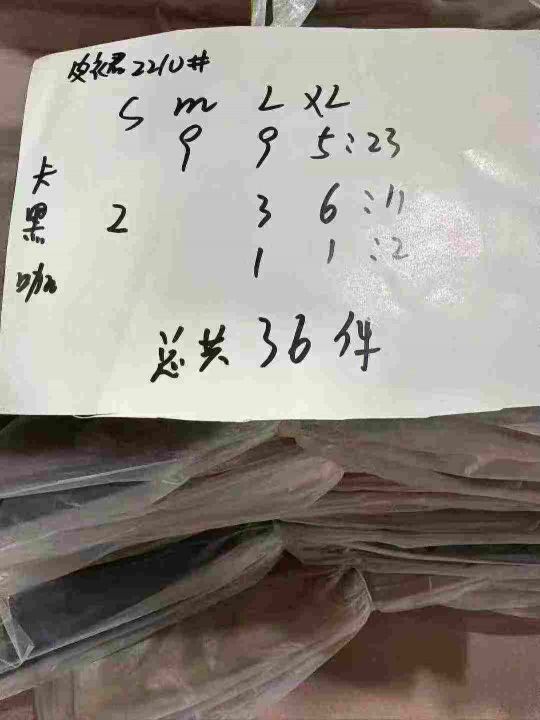 皮衣君 2210#
S m L XL
卡 9 9 5:23
黑 2 3 6:11
咖 1 1:2
总共 36 件